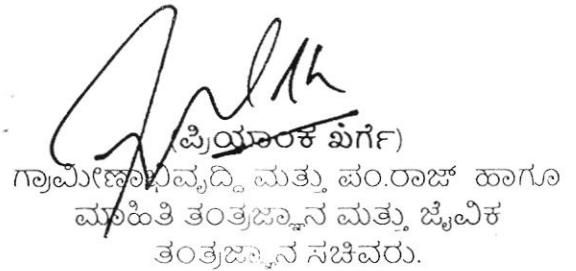 (ಪ್ರಿಯಾಂಕ ಖರ್ಗೆ)
ಗ್ರಾಮೀಣಾಭಿವೃದ್ಧಿ ಮತ್ತು ಪಂ.ರಾಜ್ ಹಾಗೂ
ಮಾಹಿತಿ ತಂತ್ರಜ್ಞಾನ ಮತ್ತು ಜೈವಿಕ
ತಂತ್ರಜ್ಞಾನ ಸಚಿವರು.